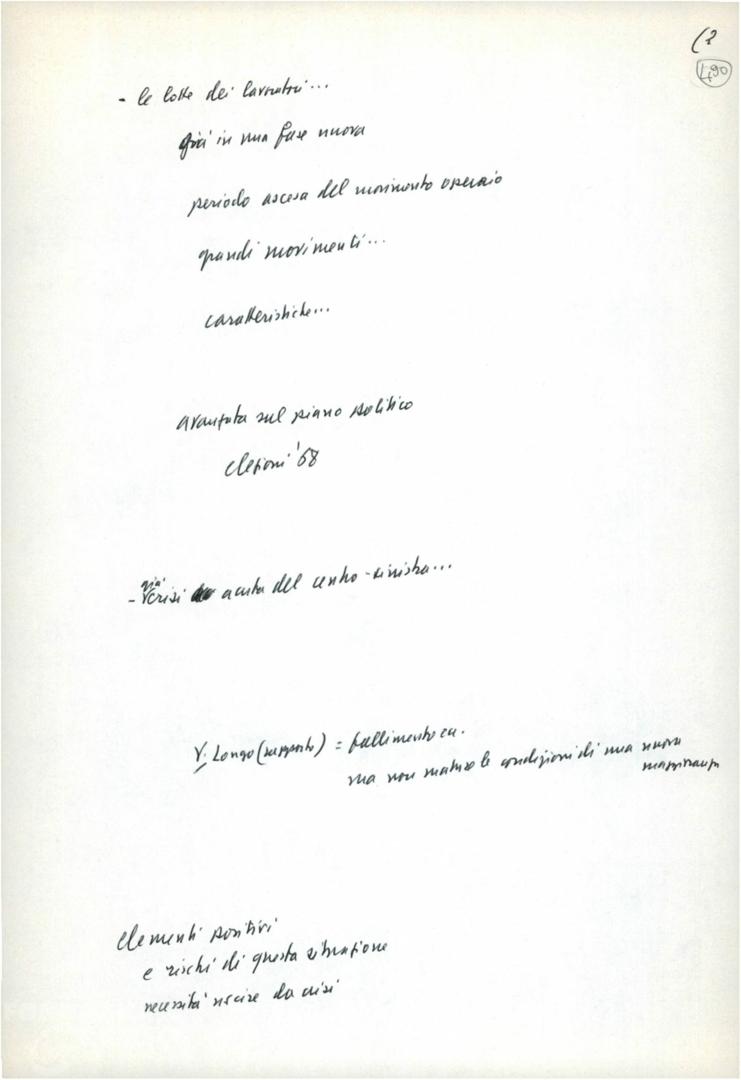 (2
490
- le lotte dei lavoratori...
già in una fase nuova
periodo ascesa del movimento operaio
grandi movimenti...
caratteristiche...
avanzata sul piano politico
elezioni '68
già
- crisi acuta del centro-sinistra...
V. Longo (rapporto) = fallimento
ma non mature le condizioni di una nuova
maggioranza
elementi positivi
e rischi di questa situazione
necessità uscire da crisi